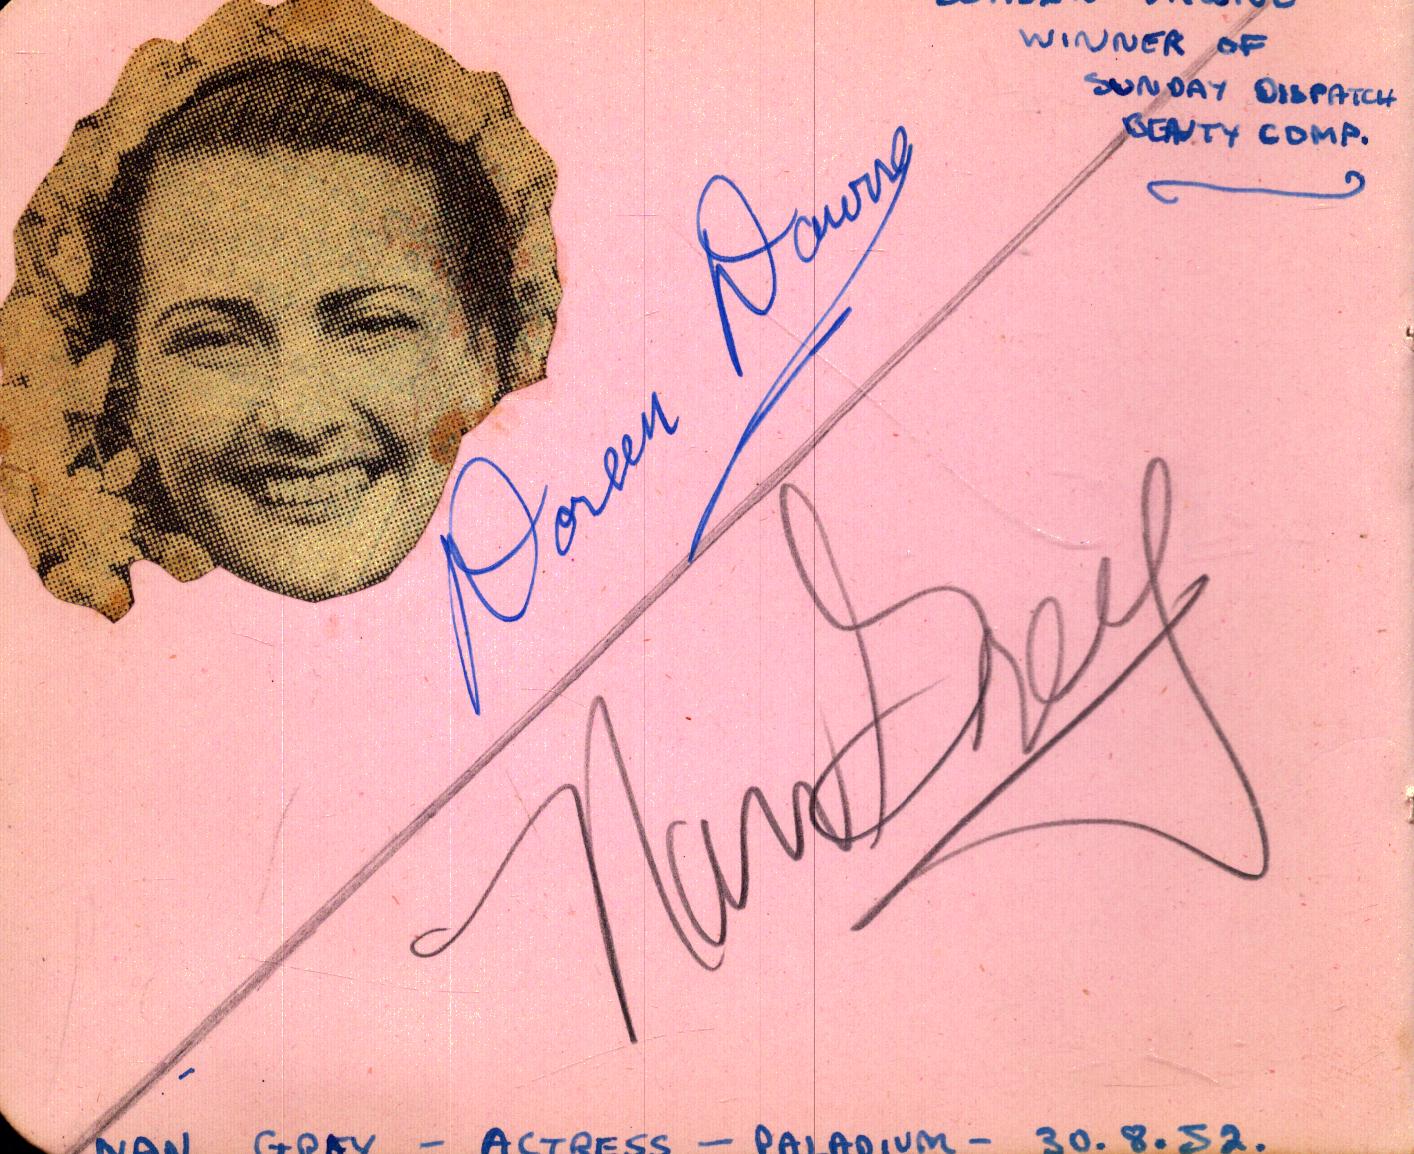 WINNER OF
SUNDAY DISPATCH
BEAUTY COMP.
Doreen Dawne
Nan Grey
NAN GRAY - ACTRESS - PALADIUM - 30.8.52.